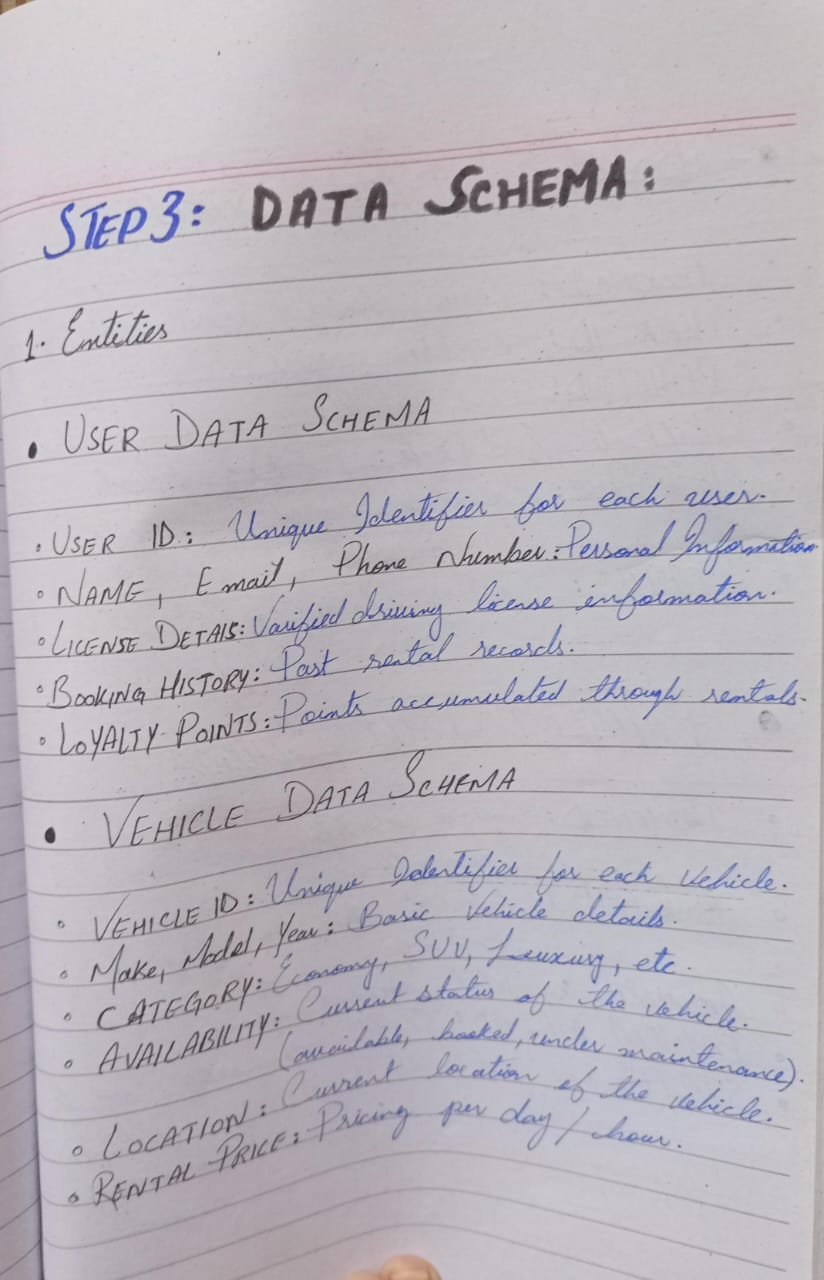 STEP 3: DATA SCHEMA:
1. Entities
• USER DATA SCHEMA
• USER ID: Unique Identifier for each user.
• NAME, Email, Phone Number: Personal Information
• LICENSE DETAIS: Varified driving license information.
• BOOKING HISTORY: Past rental records.
• LOYALTY POINTS: Points accumulated through rentals.
• VEHICLE DATA SCHEMA
• VEHICLE ID: Unique Identifier for each vehicle.
• Make, Model, Year: Basic vehicle details.
• CATEGORY: Economy, SUV, Luxury, etc.
• AVAILABILITY: Current status of the vehicle.
(available, booked, under maintenance).
• LOCATION: Current location of the vehicle.
• RENTAL PRICE: Pricing per day / hour.